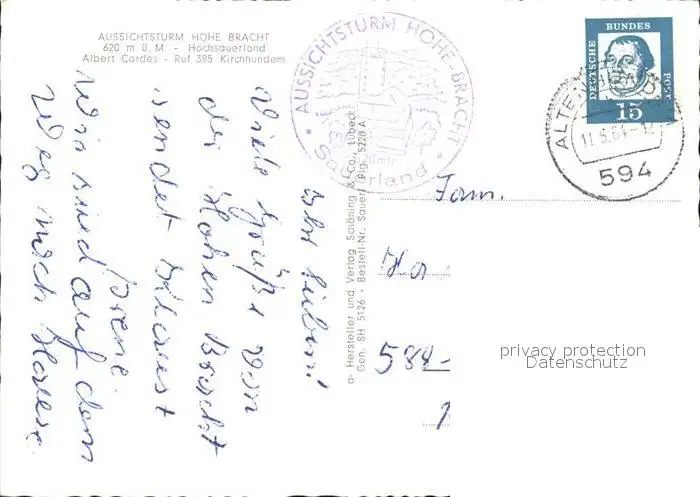 AUSSICHTSTURM HOHE BRACHT
620 m ü. M. - Hochsauerland
Albert Cordes - Ruf 395 Kirchhundem
AUSSICHTSTURM HOHE BRACHT
Sauerland
DEUTSCHE BUNDES POST
15
11.6.64-12
594
Ihr Lieben!
Viele Grüße von
der Hohen Bracht
sendet
Irene.
Wir sind auf dem
Weg nach Hause.
Hersteller und Verlag Schöning & Co., Lübeck
Gen. SH 5126 • Bestell-Nr. Sauerl. Plg. 5228 A
Fam.
584-
privacy protection
Datenschutz